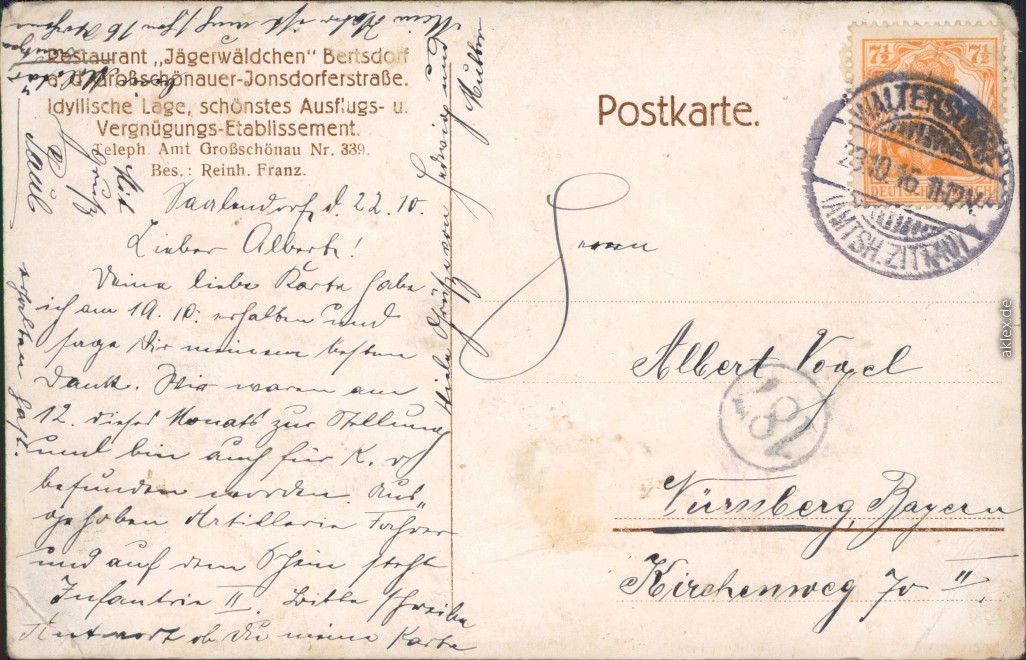 Restaurant „Jägerwäldchen" Bertsdorf
a. d. Großschönauer-Jonsdorferstraße.
Idyllische Lage, schönstes Ausflugs- u.
Vergnügungs-Etablissement.
Teleph. Amt Großschönau Nr. 339.
Bes.: Reinh. Franz.
Saalendorf, d. 22.10.
Lieber Albert!
Deine liebe Karte habe
ich am 19. 10. erhalten und
sage Dir meinen besten
Dank. Wir waren am
12. dieses Monats zur Stellung
und bin auch für K. v.
befunden worden Aus-
gehoben Artillerie Fahrer
und auf dem Schein steht
Infanterie II. Bitte schreibe
Antwort ob du meine Karte
erhalten hast.
Viele Grüße von Hedwig und
Mutter
Mein Vater ist auch schon 16 Wochen
Militär
Mit
Gruß
Paul
Postkarte.
7½ 7½
DEUTSCHES REICH
WALTERSDORF
23.10.16. 11-12V.
(AMTSH. ZITTAU)
Herrn
Albert Vogel
187
Nürnberg, Bayern
Kirchenweg 70 II
aklex.de